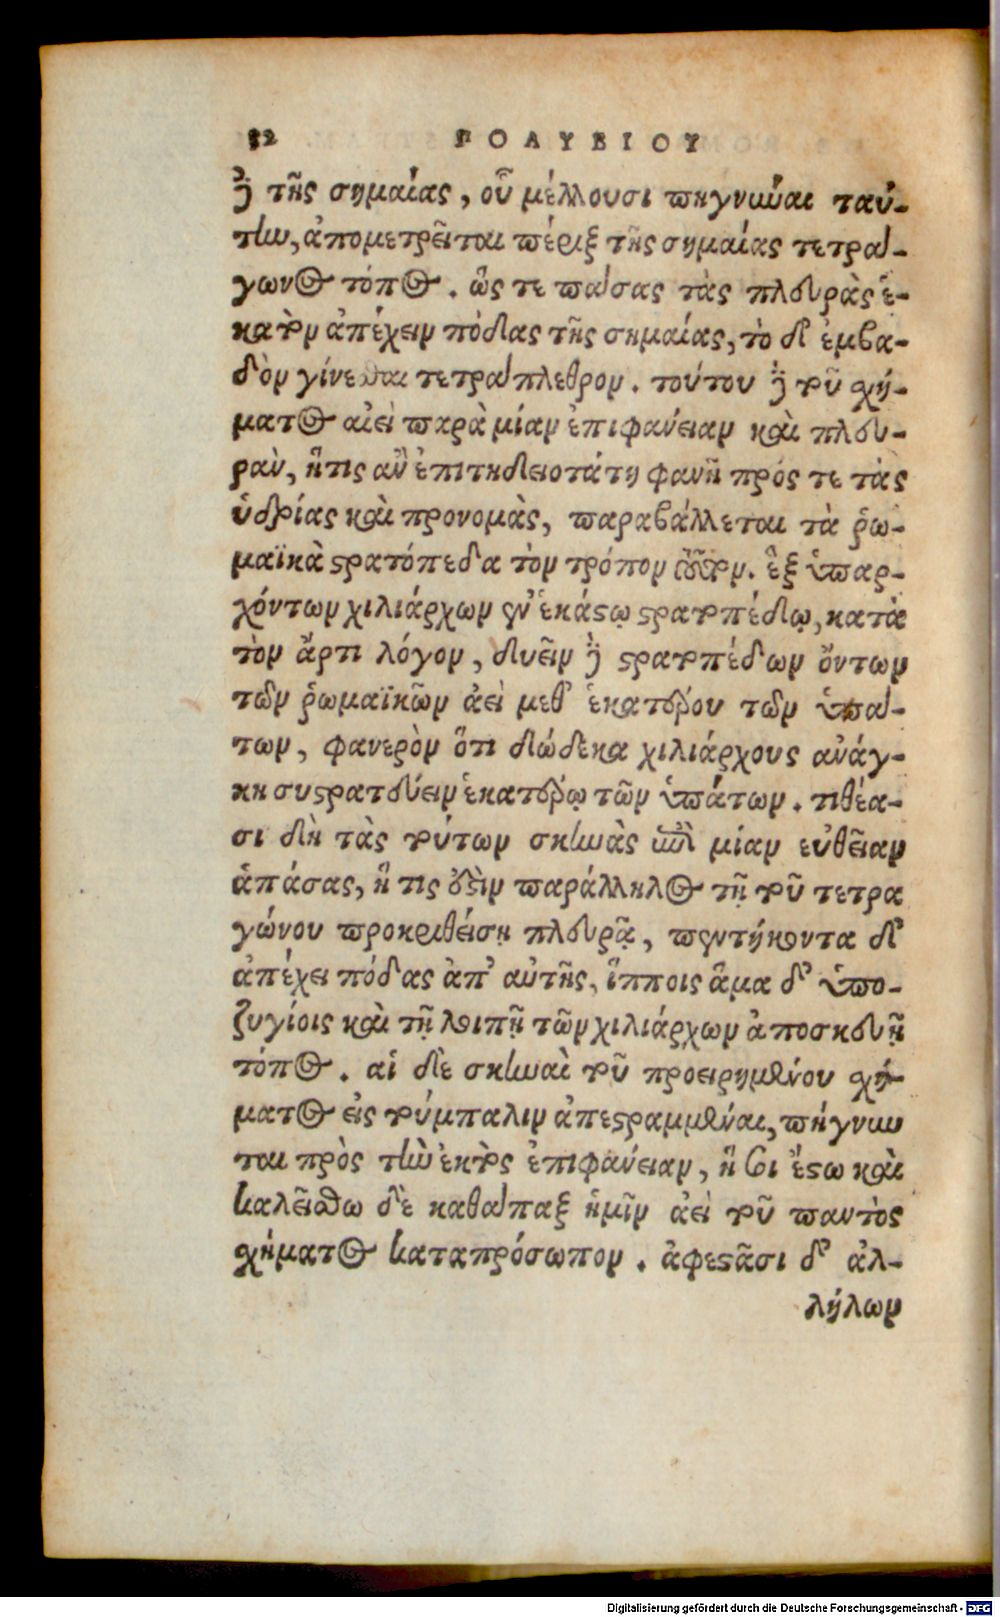 32 ΠΟΛΥΒΙΟΥ
δὲ τῆς σημαίας, οὗ μέλλουσι πηγνύναι ταύ-
την, ἀπομετρεῖται πέριξ τῆς σημαίας τετρά-
γωνος τόπος. ὥς τε πάσας τὰς πλευρὰς ἑ-
κατὸν ἀπέχειν πόδας τῆς σημαίας, τὸ δ' ἐμβα-
δὸν γίνεσθαι τετράπλεθρον. τούτου δὲ τοῦ σχή-
ματος αἰεὶ παρὰ μίαν ἐπιφάνειαν καὶ πλευ-
ρὰν, ἥτις ἂν ἐπιτηδειοτάτη φανῇ πρός τε τὰς
ὑδρίας καὶ προνομὰς, παραβάλλεται τὰ ῥω-
μαϊκὰ στρατόπεδα τὸν τρόπον τοῦτον. ἓξ ὑπαρ-
χόντων χιλιάρχων ἐν ἑκάστῳ στρατοπέδῳ, κατὰ
τὸν ἄρτι λόγον, δυεῖν δὲ στρατοπέδων ὄντων
τῶν ῥωμαϊκῶν ἀεὶ μεθ' ἑκατέρου τῶν ὑπά-
των, φανερὸν ὅτι δώδεκα χιλιάρχους ἀνάγ-
κη συστρατεύειν ἑκατέρῳ τῶν ὑπάτων. τιθέα-
σι δὴ τὰς τούτων σκηνὰς ἐπὶ μίαν εὐθεῖαν
ἁπάσας, ἥ τις ἐστὶν παράλληλος τῇ τοῦ τετρα
γώνου προκριθείσῃ πλευρᾷ, πεντήκοντα δ'
ἀπέχει πόδας ἀπ' αὐτῆς, ἵπποις ἅμα δ' ὑπο-
ζυγίοις καὶ τῇ λοιπῇ τῶν χιλιάρχων ἀποσκευῇ
τόπος. αἱ δὲ σκηναὶ τοῦ προειρημένου σχή-
ματος εἰς τούμπαλιν ἀπεστραμμέναι, πήγνυν
ται πρὸς τὴν ἐκτὸς ἐπιφάνειαν, ἣ οι ἔστω καὶ
καλείσθω δὲ καθάπαξ ἡμῖν ἀεὶ τοῦ παντὸς
σχήματος καταπρόσωπον. ἀφεστᾶσι δ' ἀλ-
λήλων
Digitalisierung gefördert durch die Deutsche Forschungsgemeinschaft - DFG